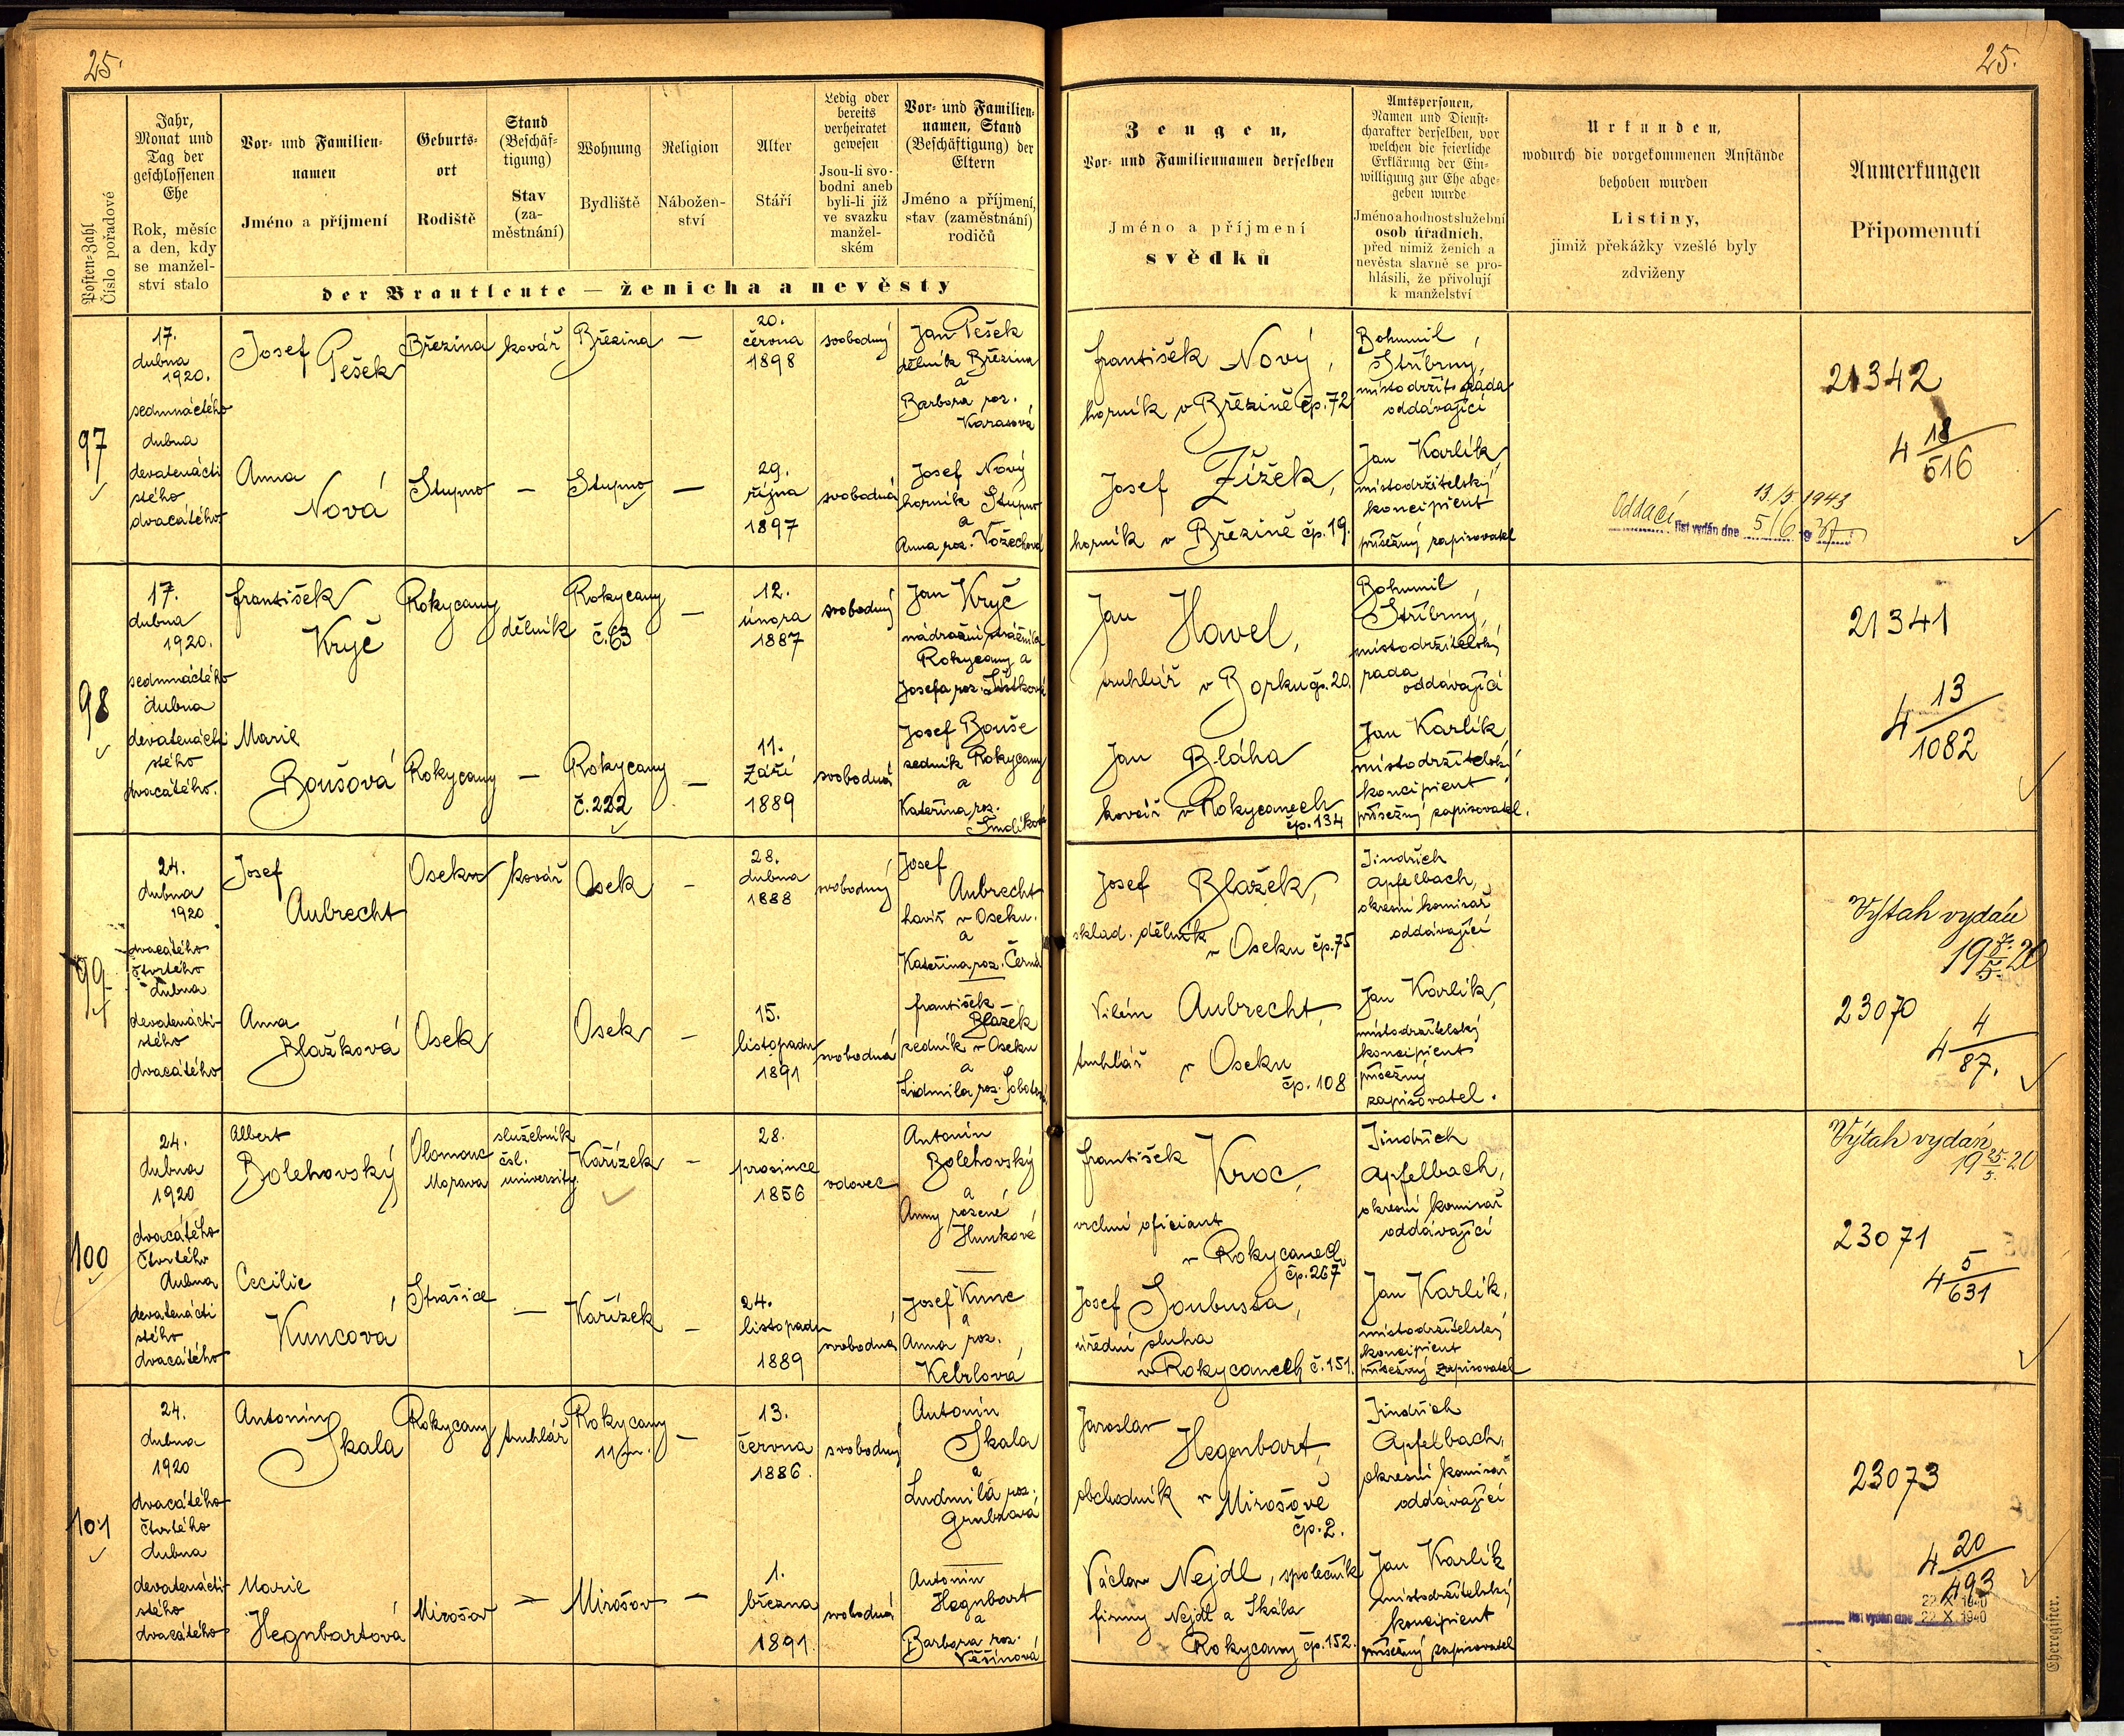 25.
25.
Posten-Zahl
Číslo pořadové
Jahr,
Monat und
Tag der
geschlossenen
Ehe
Rok, měsíc
a den, kdy
se manžel-
ství stalo
Vor- und Familien-
namen
Jméno a příjmení
Geburts-
ort
Rodiště
Stand
(Beschäf-
tigung)
Stav
(za-
městnání)
Wohnung
Bydliště
Religion
Nábožen-
ství
Alter
Stáří
Ledig oder
bereits
verheiratet
gewesen
Jsou-li svo-
bodni aneb
byli-li již
ve svazku
manžel-
ském
Vor- und Familien-
namen, Stand
(Beschäftigung) der
Eltern
Jméno a příjmení,
stav (zaměstnání)
rodičů
der Brautleute — ženicha a nevěsty
Zeugen,
Vor- und Familiennamen derselben
Jméno a příjmení
svědků
Amtspersonen,
Namen und Dienst-
charakter derselben, vor
welchen die feierliche
Erklärung der Ein-
willigung zur Ehe abge-
geben wurde
Jméno a hodnost služební
osob úřadních,
před nimiž ženich a
nevěsta slavně se pro-
hlásili, že přivolují
k manželství
Urkunden,
wodurch die vorgekommenen Anstände
behoben wurden
Listiny,
jimiž překážky vzešlé byly
zdviženy
Anmerkungen
Připomenutí
97
17.
dubna
1920.
sedmnáctého
dubna
devatenácti
stého
dvacátého.
Josef
Pešek
Březina
kovář
Březina
—
20.
června
1898
svobodný
Jan Pešek
dělník Březina
a
Barbora roz.
Karasová
Anna
Nová
Stupno
—
Stupno
—
29.
října
1897
svobodná
Josef Nový
horník Stupno
a
Anna roz. Vozechová
František Nový,
horník v Březině čp. 72
Josef Žížek,
horník v Březině čp. 19.
Bohumil
Stříbrný,
místodržit. rada
oddávající
Jan Karlík
místodržitelský
koncipient
přísežný zapisovatel
21342
4 18/516
13./5 1943
Oddací list vydán dne 5/6 1937
98
17.
dubna
1920.
sedmnáctého
dubna
devatenácti
stého
dvacátého.
František
Kryč
Rokycany
dělník
Rokycany
č. 63
—
12.
února
1887
svobodný
Jan Kryč
Rokycany a
Josefa roz.
Marie
Boušová
Rokycany
—
Rokycany
č. 222
—
11.
září
1889
svobodná
Josef Bouše
zedník Rokycany
a
Kateřina roz.
Jan Havel,
truhlář v Borku čp. 20.
Jan Bláha
kovář v Rokycanech
čp. 134
Bohumil
Stříbrný,
místodržitelský
rada
oddávající
Jan Karlík
místodržitelský
koncipient
přísežný zapisovatel.
21341
4 13/1082
99
24.
dubna
1920
dvacátého
čtvrtého
dubna
devatenácti-
stého
dvacátého
Josef
Aubrecht
Osek
kovář
Osek
—
28.
dubna
1888
svobodný
Josef
Aubrecht
havíř v Oseku.
a
Kateřina roz. Černá
Anna
Blažková
Osek
Osek
—
15.
listopadu
1891
svobodná
František
Blažek
zedník v Oseku
a
Lidmila roz.
Josef Blažek,
sklad. dělník
v Oseku čp. 75
Vilém Aubrecht,
truhlář v Oseku
čp. 108
Jindřich
Apfelbach,
okresní komisař
oddávající
Jan Karlík,
místodržitelský
koncipient
přísežný
zapisovatel.
Výtah vydán
23070
4 4/87.
100
24.
dubna
1920
dvacátého
čtvrtého
dubna
devatenácti
stého
dvacátého
Albert
Bolehovský
Olomouc
Morava
služebník
čsl.
university
Kařízek
—
28.
prosince
1856
vdovec
Antonín
Bolehovský
a
Anny rozené
Hunkové
Cecilie
Kuncová
Strašice
—
Kařízek
—
24.
listopadu
1889
svobodná
Josef Kunc
a
Anna roz.
Kebrlová
František Kroc,
vrchní oficiant
v Rokycanech
čp. 267
Josef Soubusta,
úřední sluha
v Rokycanech č. 151.
Jindřich
Apfelbach,
okresní komisař
oddávající
Jan Karlík,
místodržitelský
koncipient
přísežný zapisovatel
Výtah vydán
19 25./5. 20
23071
4 5/631
101
24.
dubna
1920
dvacátého
čtvrtého
dubna
devatenácti-
stého
dvacátého
Antonín
Skala
Rokycany
truhlář
Rokycany
—
13.
června
1886.
svobodný
Antonín
Skala
a
Ludmila roz.
Marie
Hegnbartová
Mirošov
—
Mirošov
—
1.
března
1891.
svobodná
Antonín
Hegnbart
a
Barbora roz.
Věšínová
Jaroslav
Hegenbart,
obchodník v Mirošově
čp. 2.
Václav Nejdl, společník
firmy Nejdl a Skála
Rokycany čp. 152.
Jindřich
Apfelbach,
okresní komisař
oddávající
Jan Karlík
místodržitelský
koncipient
přísežný zapisovatel
23073
4 20/493
22. X. 1940
list vydán dne 22. X. 1940
Eheregister.